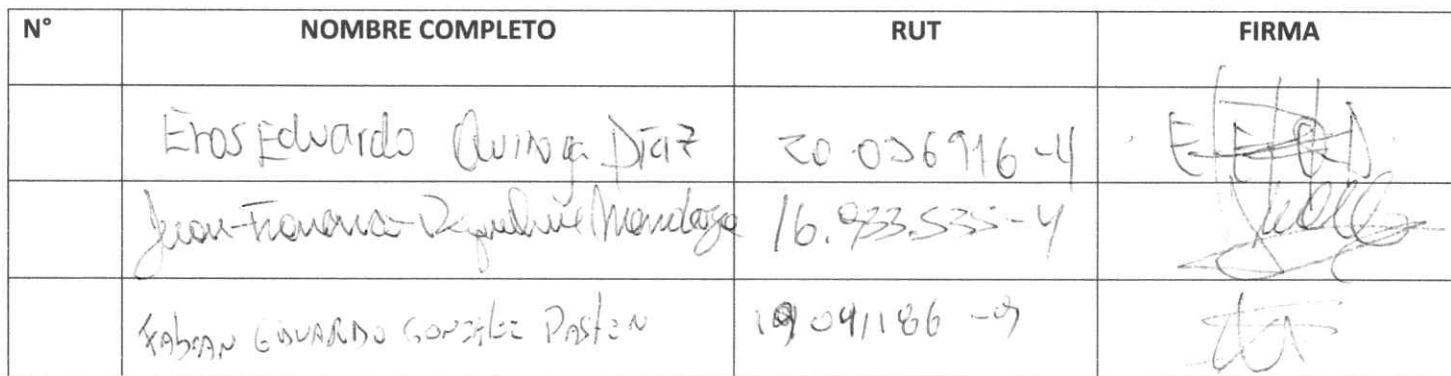 N° NOMBRE COMPLETO RUT FIRMA
Eros Eduardo Quiroga Díaz 20.036916-4 E E Q D.
Juan Francisco Mendoza 16.933.535-4
FABIAN EDUARDO GONZÁLEZ PASTÉN 19041186-9